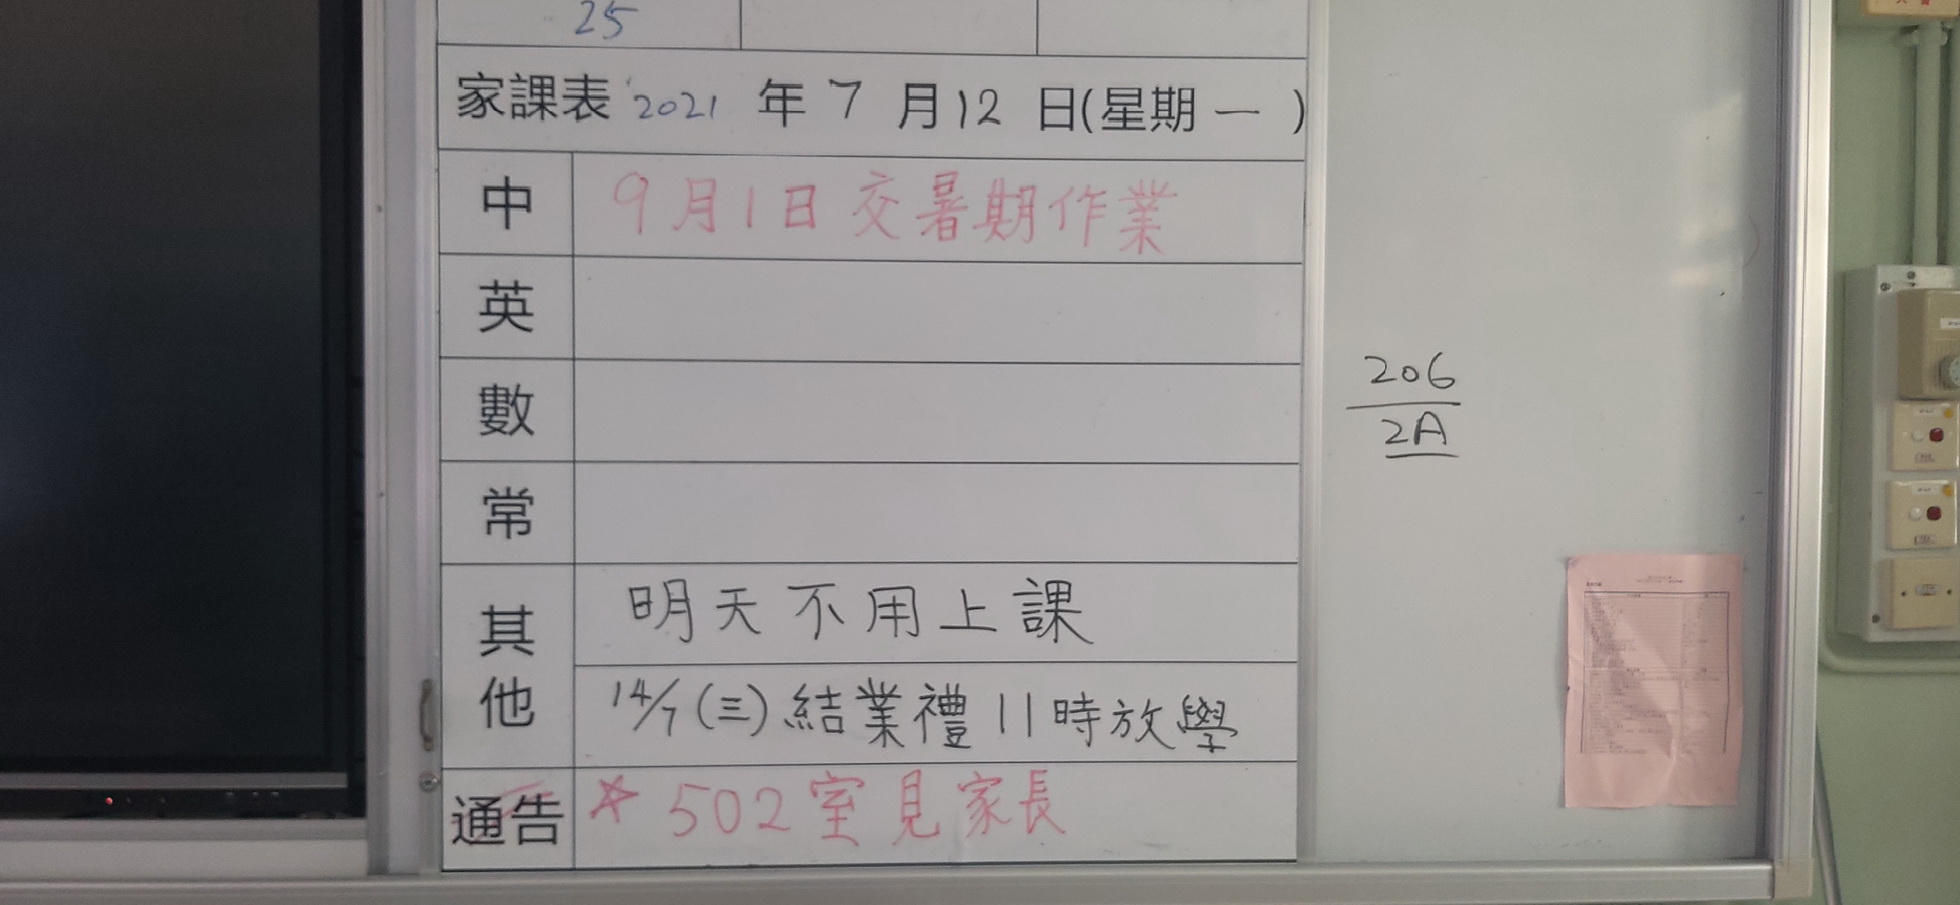 25
家課表 2021 年 7 月 12 日(星期 一 )
中 9月1日交暑期作業
英
數
常
其他 明天不用上課
14/7 (三) 結業禮 11時放學
通告 ☆ 502室見家長
206
2A